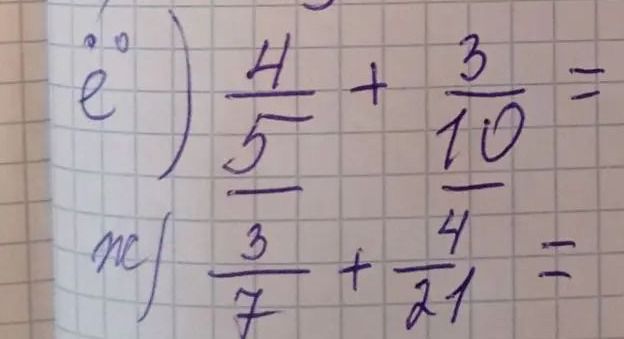 ё) 4/5 + 3/10 =
ж) 3/7 + 4/21 =